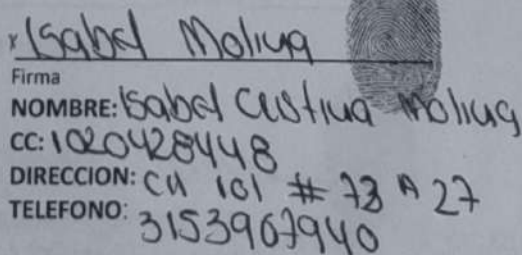 x Isabel Molina
Firma
NOMBRE: Isabel Cristina Molina
CC: 1020428448
DIRECCION: Cll 101 # 73 A 27
TELEFONO: 3153967940